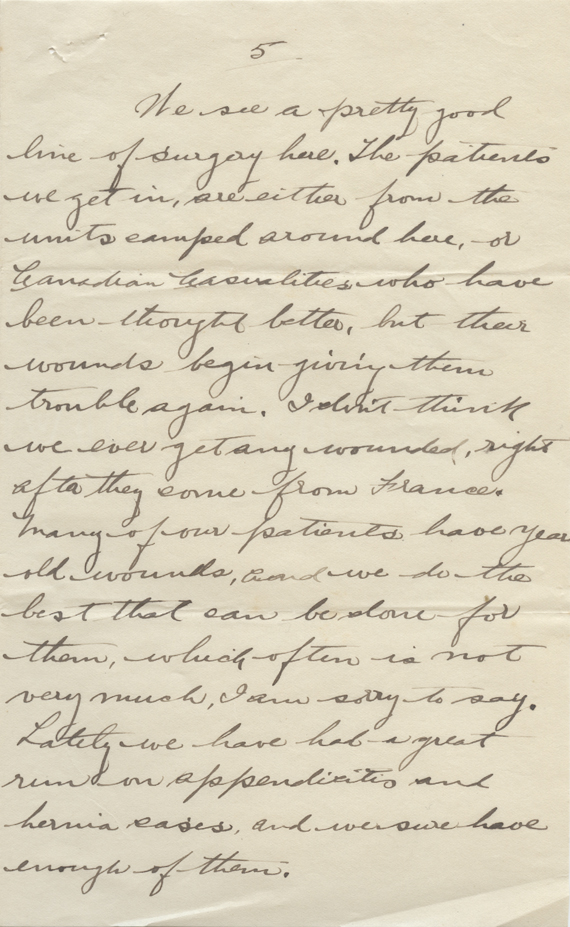 5
We see a pretty good
line of surgery here. The patients
we get in, are either from the
units camped around here, or
Canadian Casualities who have
been thought better, but their
wounds begin giving them
trouble again. I don't think
we ever get any wounded, right
after they come from France.
Many of our patients have year
old wounds, and we do the
best that can be done for
them, which often is not
very much, I am sorry to say.
Lately we have had a great
run on appendicitis and
hernia cases, and we sure have
enough of them.